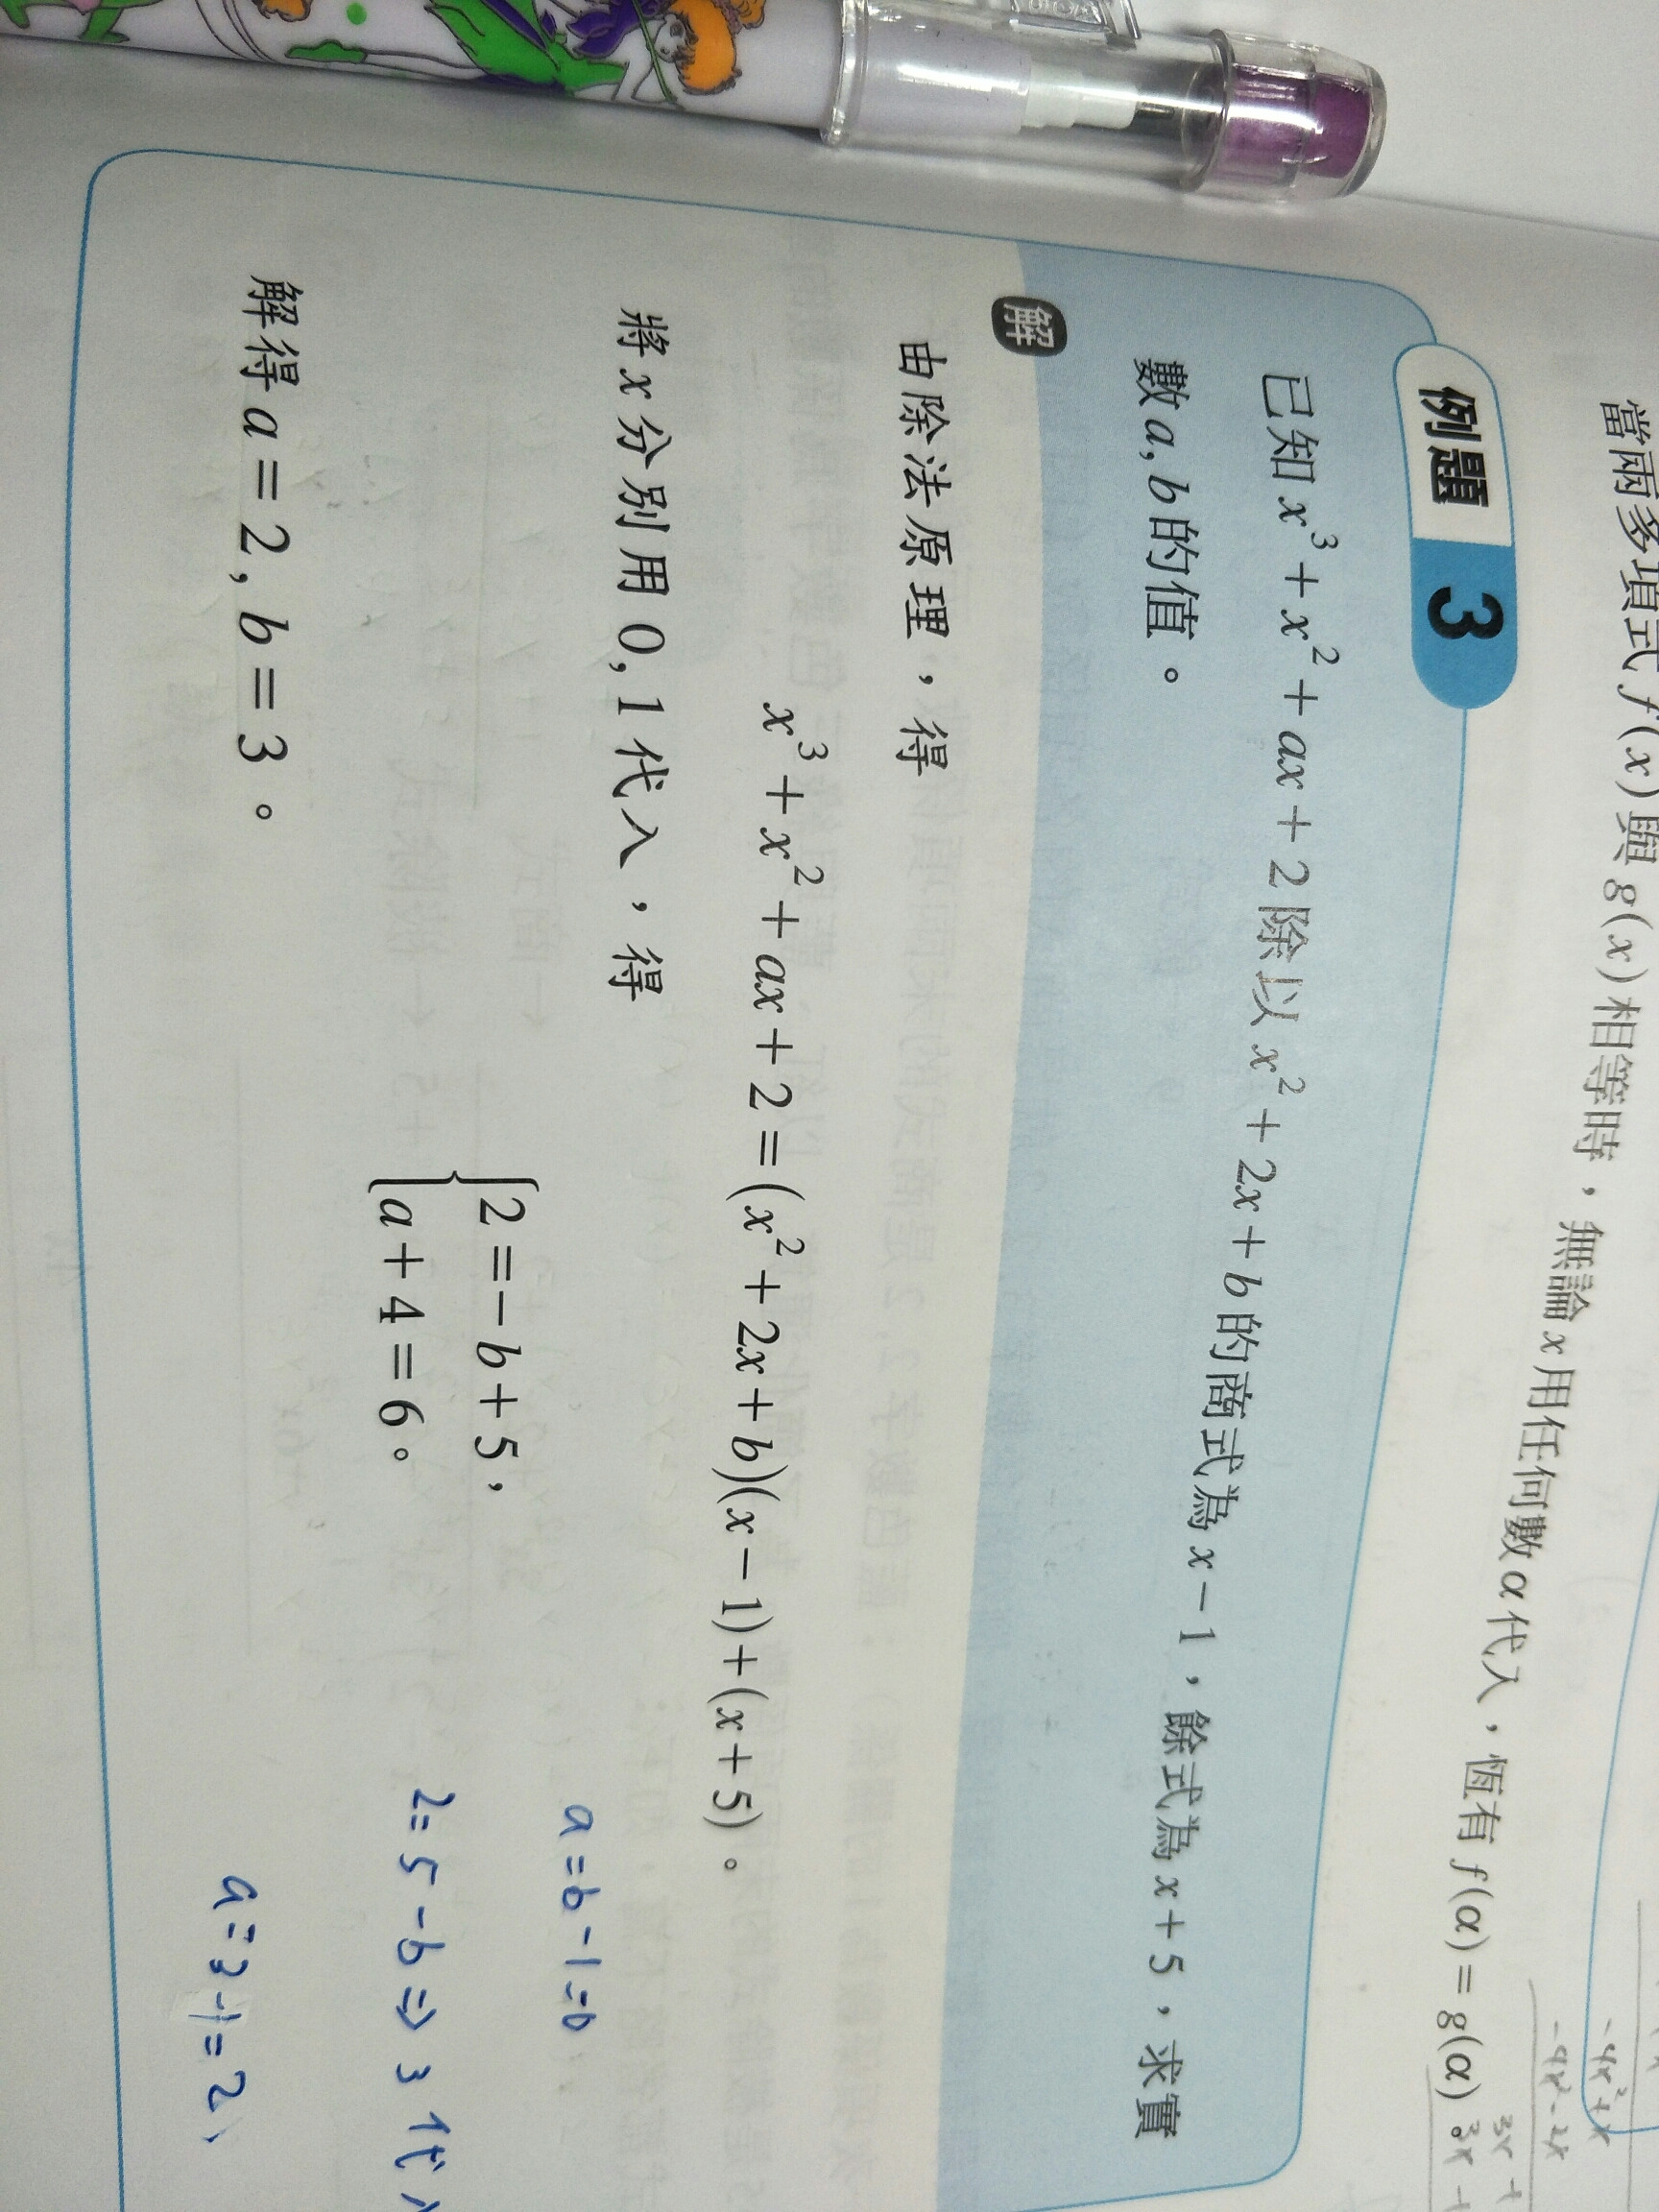 當兩多項式 f(x) 與 g(x) 相等時，無論 x 用任何數 α 代入，恆有 f(α) = g(α)。
例題 3
已知 x³ + x² + ax + 2 除以 x² + 2x + b 的商式為 x − 1，餘式為 x + 5，求實
數 a, b 的值。
解
由除法原理，得
x³ + x² + ax + 2 = (x² + 2x + b)(x − 1) + (x + 5)。
將 x 分別用 0, 1 代入，得
{2 = − b + 5，
a + 4 = 6。
解得 a = 2, b = 3。
-4x²+x
-4x²-2x
3x +
3x +
a = b - 1 = 0
2 = 5 - b => 3 代入
a = 3 - 1 = 2